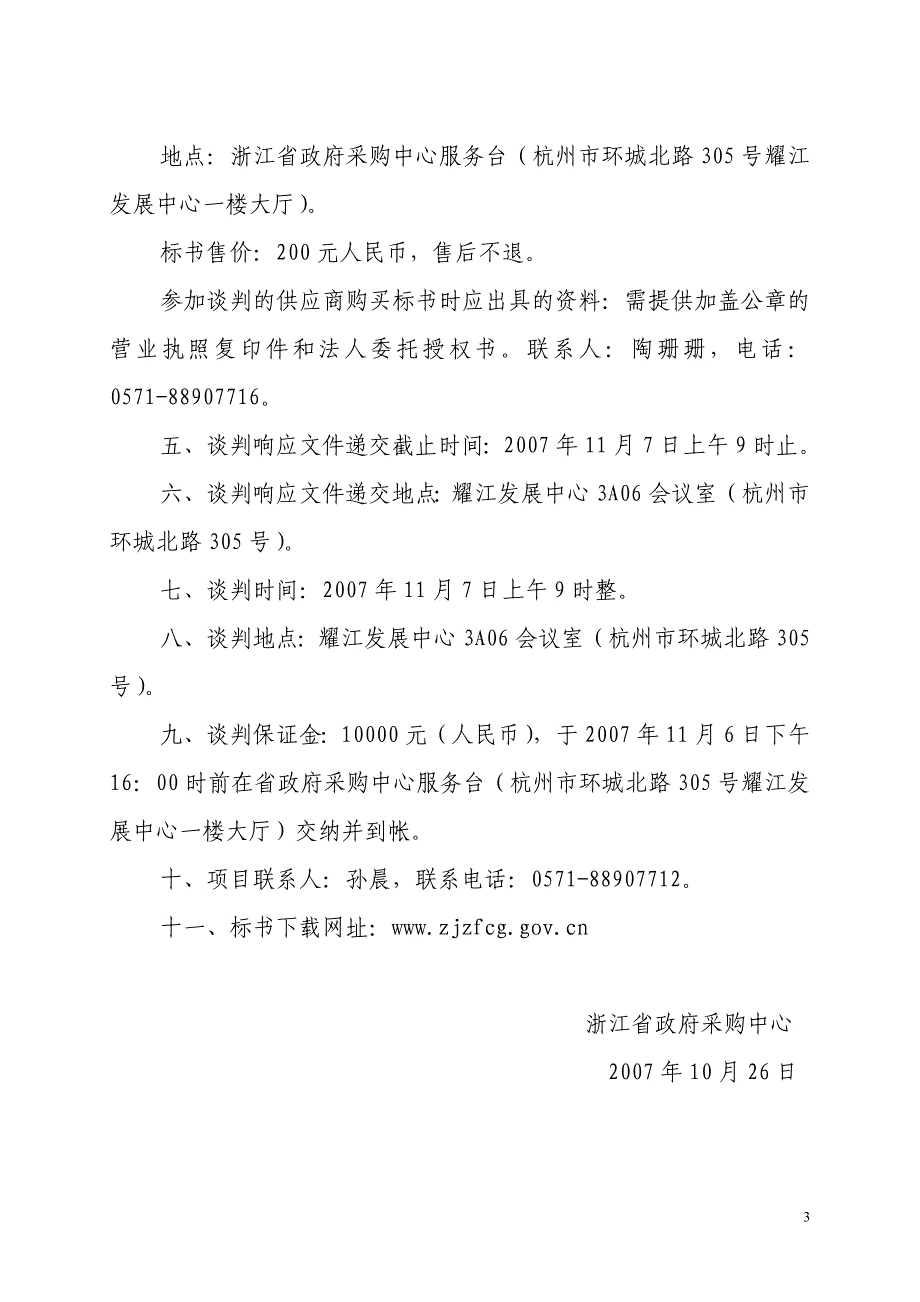 地点：浙江省政府采购中心服务台（杭州市环城北路 305 号耀江
发展中心一楼大厅）。
标书售价：200 元人民币，售后不退。
参加谈判的供应商购买标书时应出具的资料：需提供加盖公章的
营业执照复印件和法人委托授权书。联系人：陶珊珊，电话：
0571-88907716。
五、谈判响应文件递交截止时间：2007 年 11 月 7 日上午 9 时止。
六、谈判响应文件递交地点：耀江发展中心 3A06 会议室（杭州市
环城北路 305 号）。
七、谈判时间：2007 年 11 月 7 日上午 9 时整。
八、谈判地点：耀江发展中心 3A06 会议室（杭州市环城北路 305
号）。
九、谈判保证金：10000 元（人民币），于 2007 年 11 月 6 日下午
16：00 时前在省政府采购中心服务台（杭州市环城北路 305 号耀江发
展中心一楼大厅）交纳并到帐。
十、项目联系人：孙晨，联系电话：0571-88907712。
十一、标书下载网址：www.zjzfcg.gov.cn
浙江省政府采购中心
2007 年 10 月 26 日
3